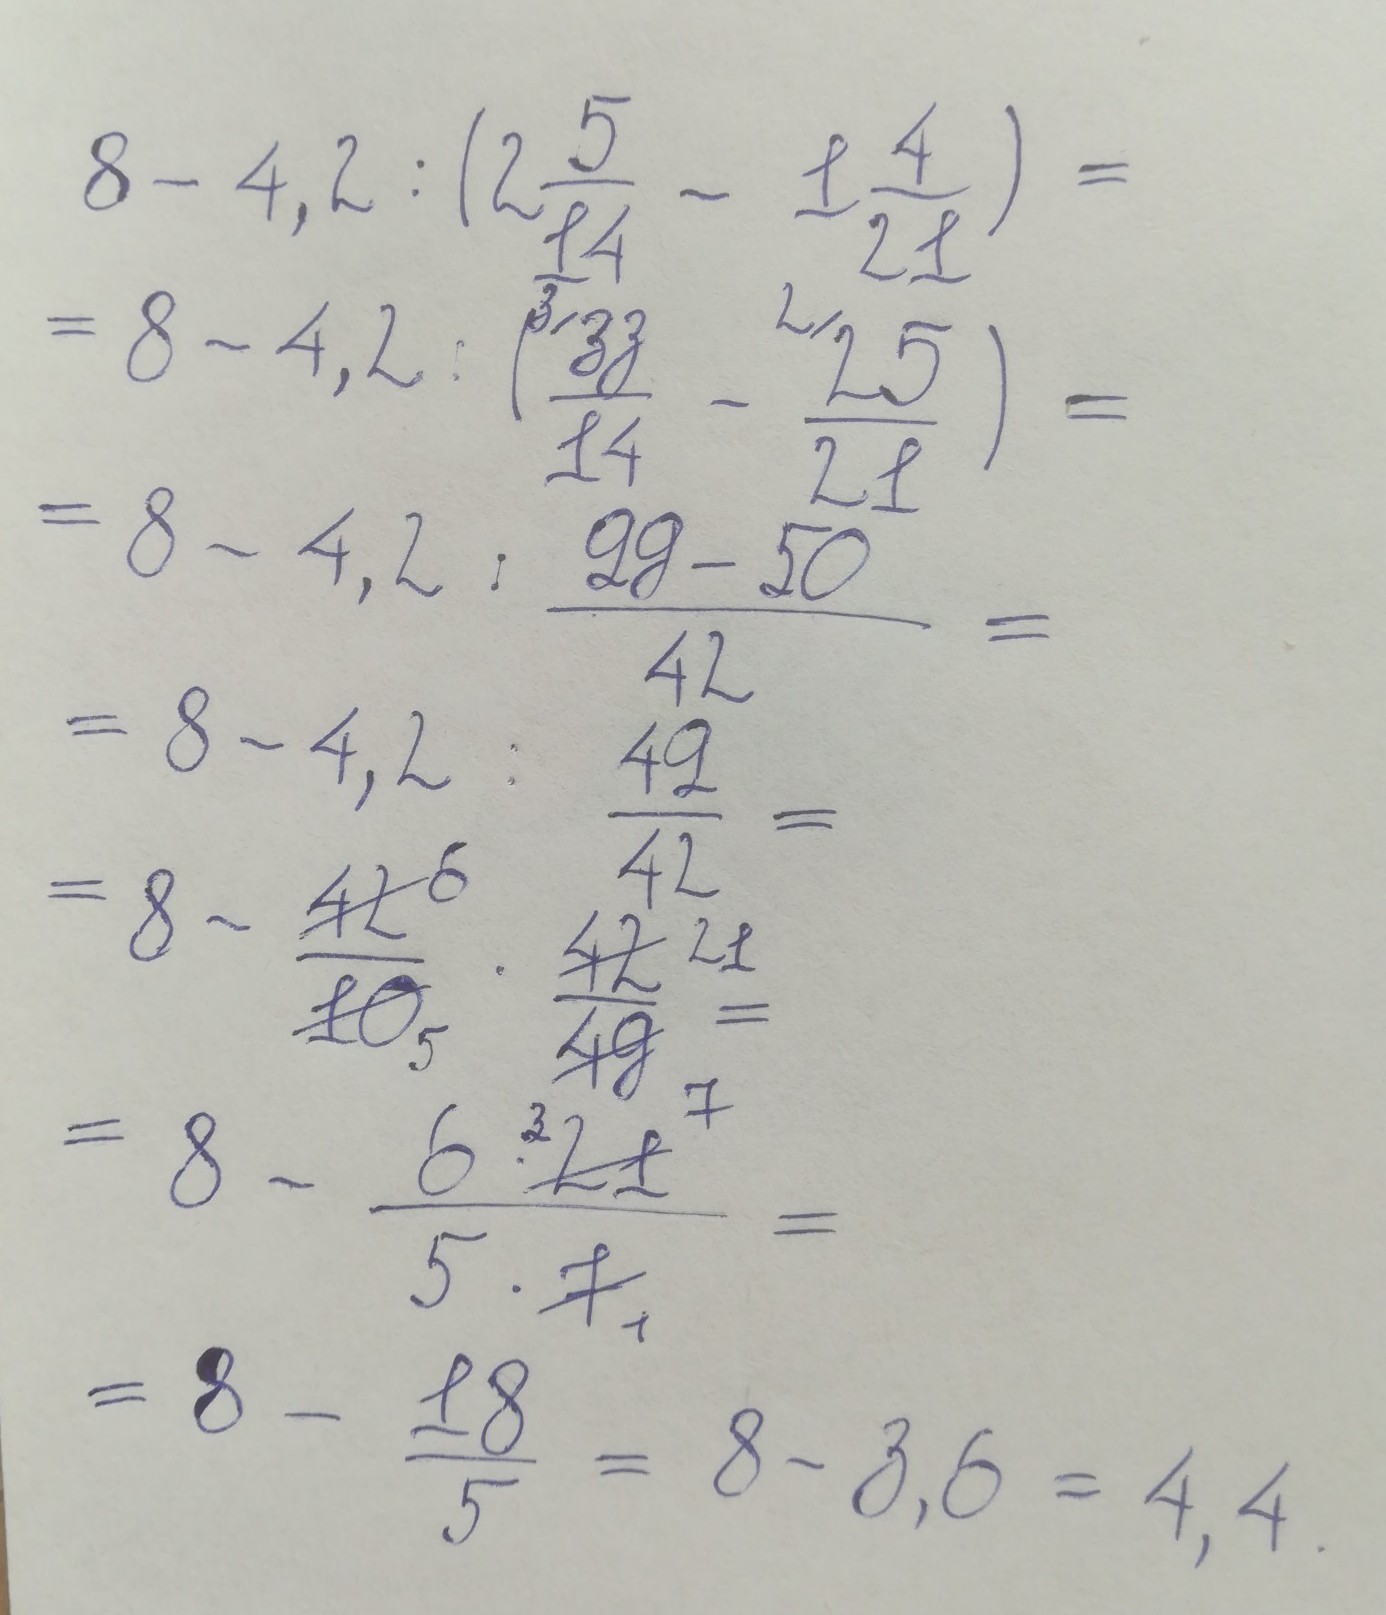 8 - 4,2 : (2 5/14 - 1 4/21) =
= 8 - 4,2 : (3/ 33/14 - 2/ 25/21) =
= 8 - 4,2 : (99 - 50)/42 =
= 8 - 4,2 : 49/42 =
= 8 - 42 6/10 5 · 42 21/49 7 =
= 8 - (6 · 3 21)/(5 · 7 1) =
= 8 - 18/5 = 8 - 3,6 = 4,4.